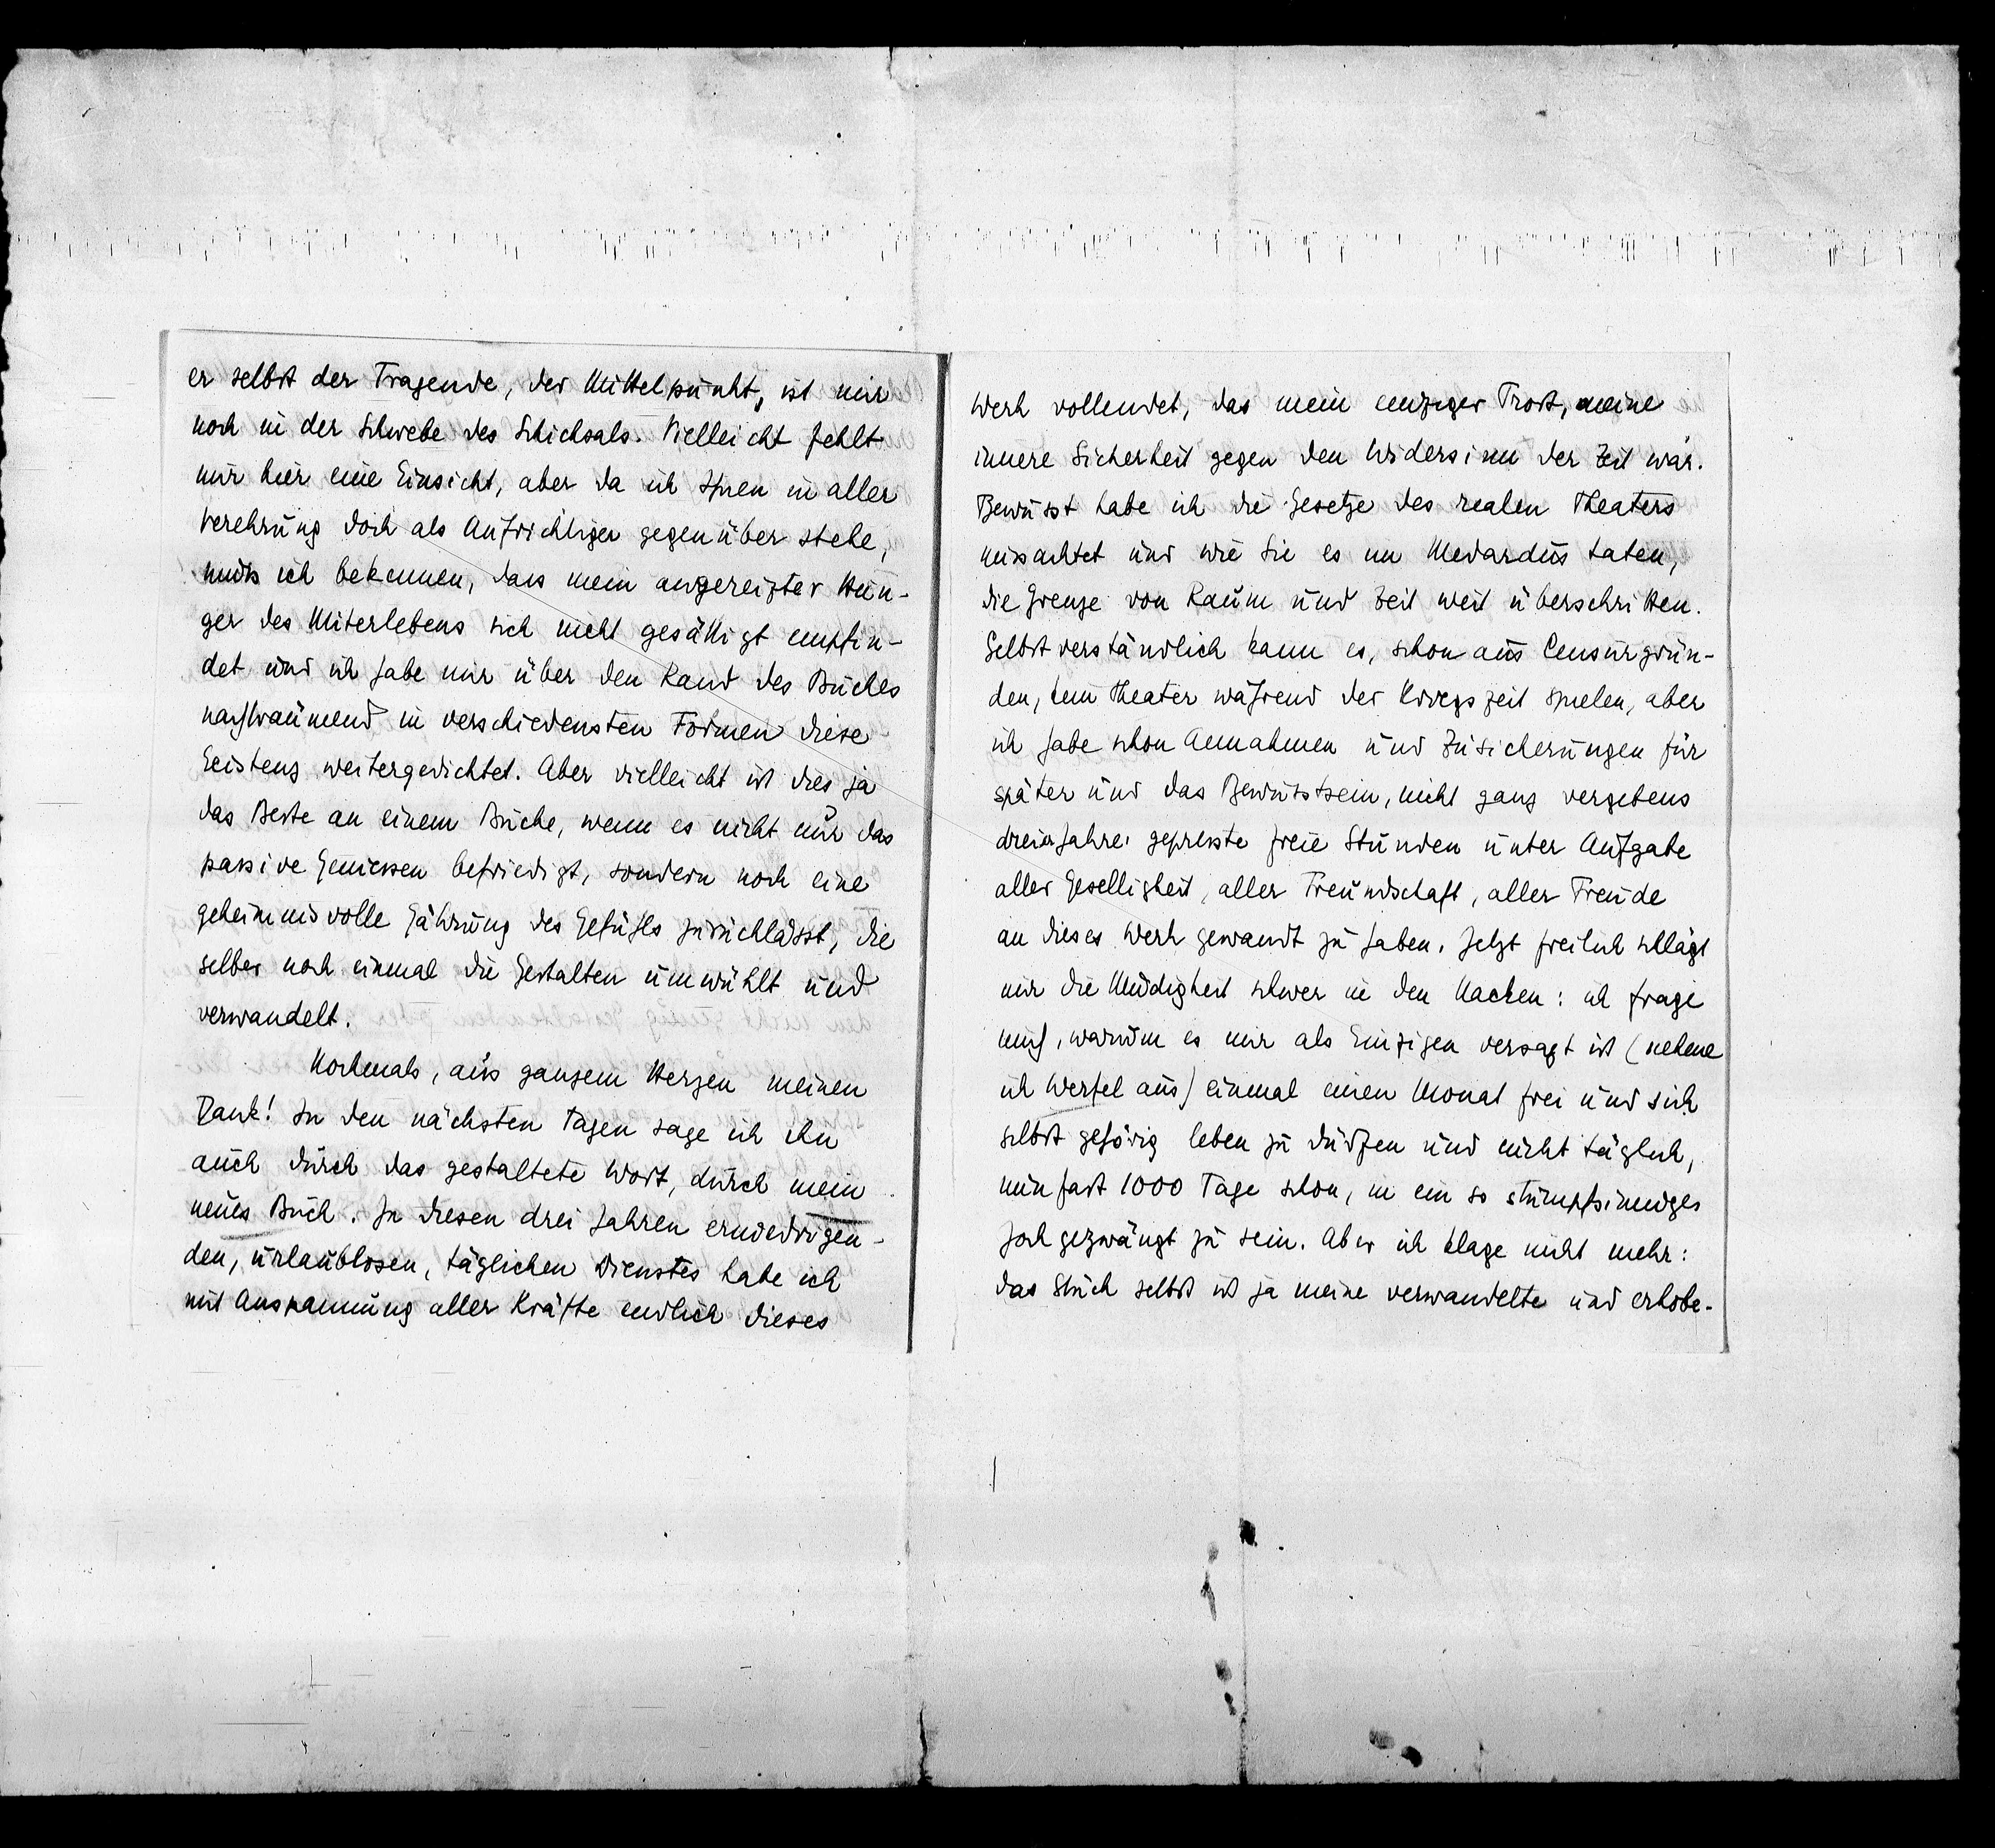 er selbst der Tragende, der Mittelpunkt, ist mir
noch in der Schwebe des Schicksals. Vielleicht fehlt
mir hier eine Einsicht, aber da ich Ihnen in aller
Verehrung doch als Aufrichtiger gegenüber stehe,
muss ich bekennen, dass mein angereizter Hun-
ger des Miterlebens sich nicht gesättigt empfin-
det und ich habe mir über den Rand des Buches
nachträumend in verschiedensten Formen diese
Existenz weitergedichtet. Aber vielleicht ist dies ja
das Beste an einem Buche, wenn es nicht nur das
passive Geniessen befriedigt, sondern noch eine
geheimnisvolle Gährung des Gefühls zurücklässt, die
selber noch einmal die Gestalten umwühlt und
verwandelt.
Nochmals, aus ganzem Herzen meinen
Dank! In den nächsten Tagen sage ich ihn
auch durch das gestaltete Wort, durch mein
neues Buch. In diesen drei Jahren erniedrigen-
den, urlaublosen, täglichen Dienstes habe ich
mit Anspannung aller Kräfte endlich dieses
Werk vollendet, das mein einziger Trost, meine
innere Sicherheit gegen den Widersinn der Zeit war.
Bewusst habe ich die Gesetze des realen Theaters
missachtet und wie Sie es im Medardus taten,
die Grenze von Raum und Zeit weit überschritten.
Selbstverständlich kann es, schon aus Censurgrün-
den, kein Theater während der Kriegszeit spielen, aber
ich habe schon Annahmen und Zusicherungen für
später und das Bewusstsein, nicht ganz vergebens
drei Jahre gepresste freie Stunden unter Aufgabe
aller Geselligkeit, aller Freundschaft, aller Freude
an dieses Werk gewandt zu haben. Jetzt freilich schlägt
mir die Müdigkeit schwer in den Nacken: ich frage
mich, warum es mir als Einzigen versagt ist (nehme
ich Werfel aus) einmal einen Monat frei und sich
selbst gehörig leben zu dürfen und nicht täglich,
nun fast 1000 Tage schon, in ein so stumpfsinniges
Joch gezwängt zu sein. Aber ich klage nicht mehr:
das Stück selbst ist ja meine verwandelte und erhobe-